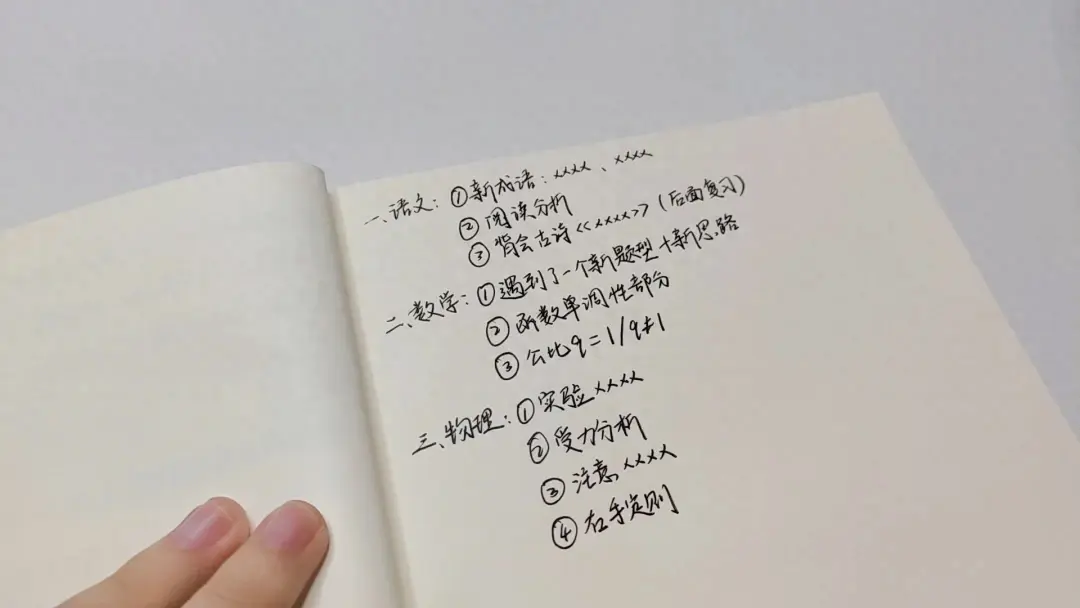 一、语文：①新成语：××××、××××
②阅读分析
③背会古诗《××××》（后面复习）
二、数学：①遇到了一个新题型+新思路
②函数单调性部分
③公比q=1/q≠1
三、物理：①实验××××
②受力分析
③注意××××
④右手定则